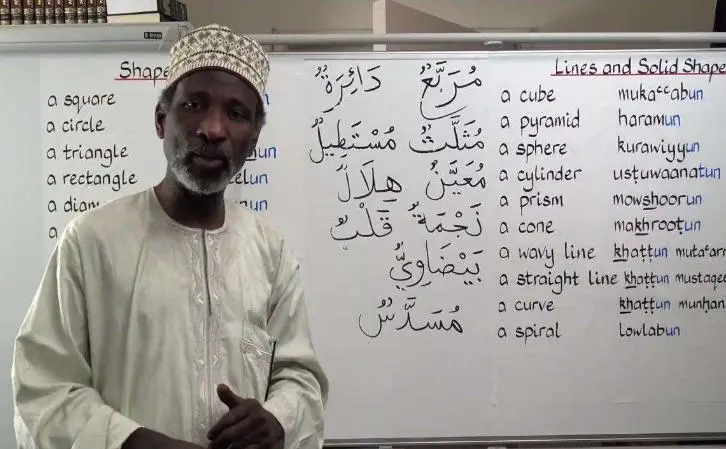 Shape
a square
a circle
a triangle
a rectangle
a diam
a
مُرَبَّعٌ دَائِرَةٌ
مُثَلَّثٌ مُسْتَطِيلٌ
مُعَيَّنٌ هِلَالٌ
نَجْمَةٌ قَلْبٌ
بَيْضَاوِيٌّ
مُسَدَّسٌ
Lines and Solid Shape
a cube mukaᶜᶜabun
a pyramid haramun
a sphere kurawiyyun
a cylinder usṭuwaanatun
a prism mowshoorun
a cone makhrooṭun
a wavy line khaṭṭun mutaᶜarr
a straight line khaṭṭun mustaqee
a curve khaṭṭun munḥan
a spiral lowlabun